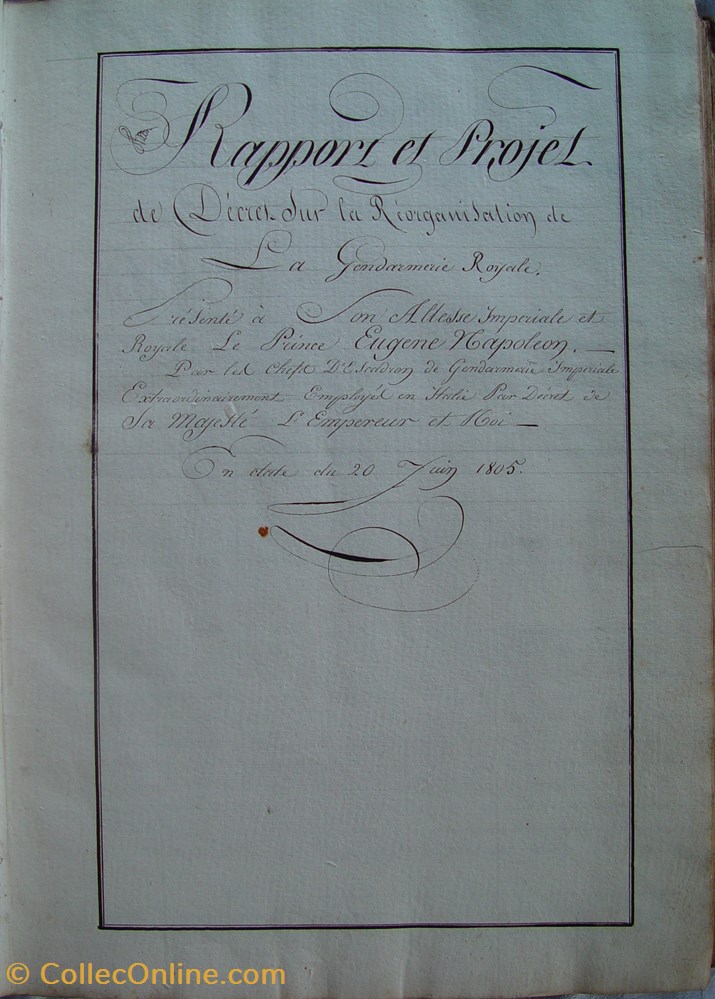 Rapport et Projet
de Décret Sur la Réorganisation de
La Gendarmerie Royale.
Présenté à Son Altesse Imperiale et
Royale Le Prince Eugene Napoléon. —
Par les Chefs D'Escadron de Gendarmerie Impériale
Extraordinairement Employés en Italie Par Décret de
Sa Majesté L'Empereur et Roi —
En date du 20 Juin 1805.
© CollecOnline.com